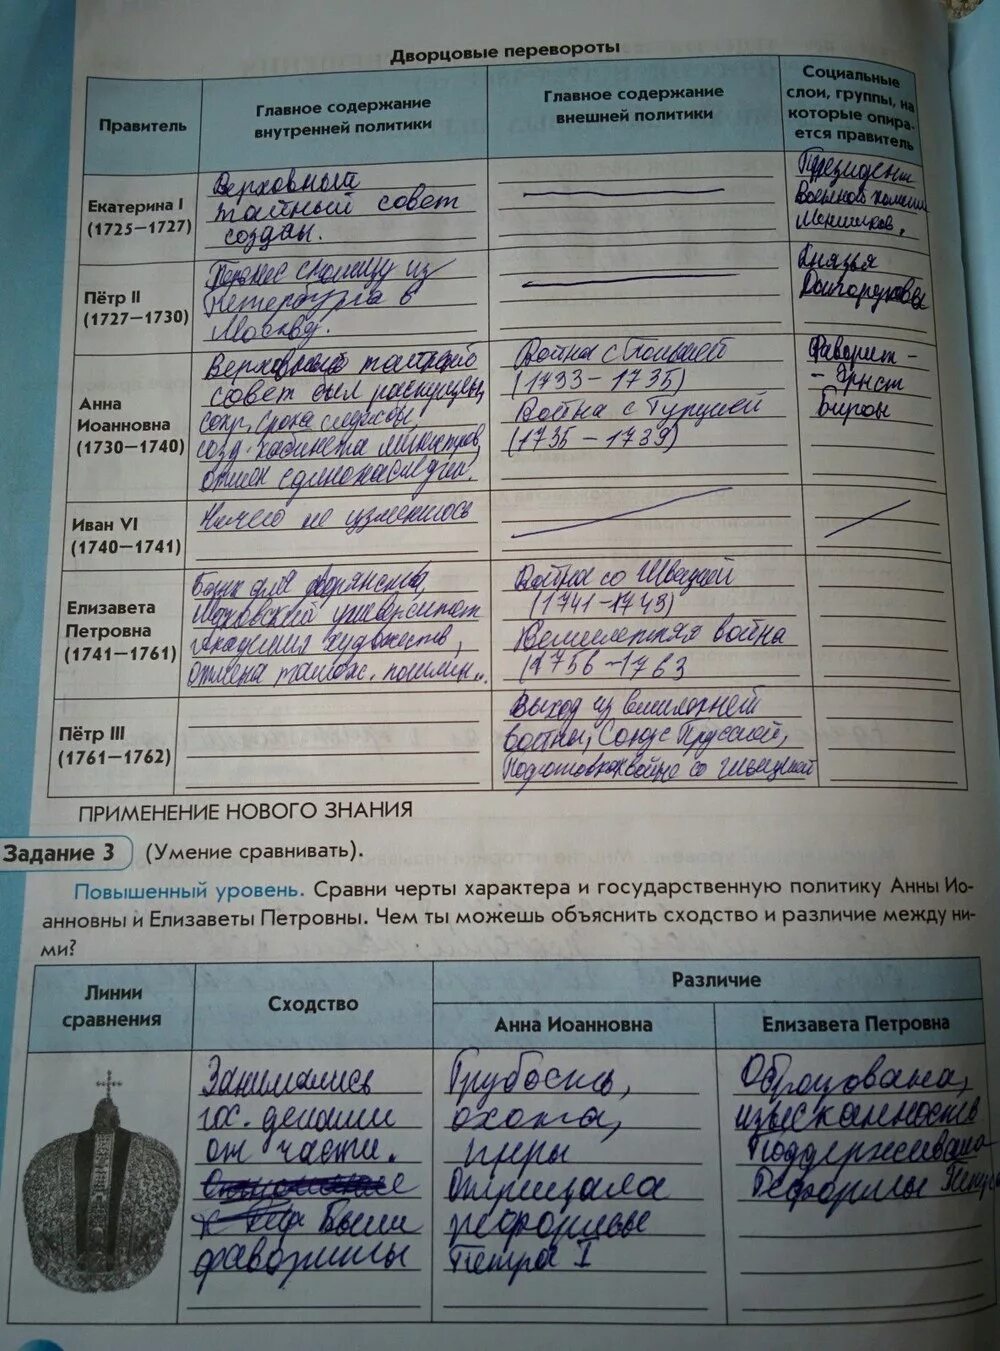 Дворцовые перевороты
Правитель
Главное содержание
внутренней политики
Главное содержание
внешней политики
Социальные
слои, группы, на
которые опира-
ется правитель
Екатерина I
(1725—1727)
Верховный
тайный совет
создан.
Президент
Военной
Меншиков,
Пётр II
(1727—1730)
Перенес столицу из
Петербурга в
Москву.
Князья
Долгоруковы
Анна
Иоанновна
(1730—1740)
Верховный тайный
совет был распущен,
сокр. срока службы,
созд. кабинета министров,
отмен единонаследия.
Война с Польшей
(1733 – 1735)
Война с Турцией
(1735 – 1739)
Фаворит –
– Эрнст
Бирон
Иван VI
(1740—1741)
Ничего не изменилось
Елизавета
Петровна
(1741—1761)
Банк для дворянства,
Московский университет
академия художеств,
отмена тамож. пошлин.
Война со Швецией
(1741-1743)
Семилетняя война
(1756-1763
Пётр III
(1761—1762)
Выход из
войны, Союз с Пруссией,
Подготовка к войне со
ПРИМЕНЕНИЕ НОВОГО ЗНАНИЯ
Задание 3 (Умение сравнивать).
Повышенный уровень. Сравни черты характера и государственную политику Анны Ио-
анновны и Елизаветы Петровны. Чем ты можешь объяснить сходство и различие между ни-
ми?
Линии
сравнения
Сходство
Различие
Анна Иоанновна
Елизавета Петровна
Занимались
гос. делами
от части.
Были
фавориты
Грубость,
охота,
пиры
Отрицала
реформы
Петра I
Образована,
изысканность
Поддерживала
Реформы Петра